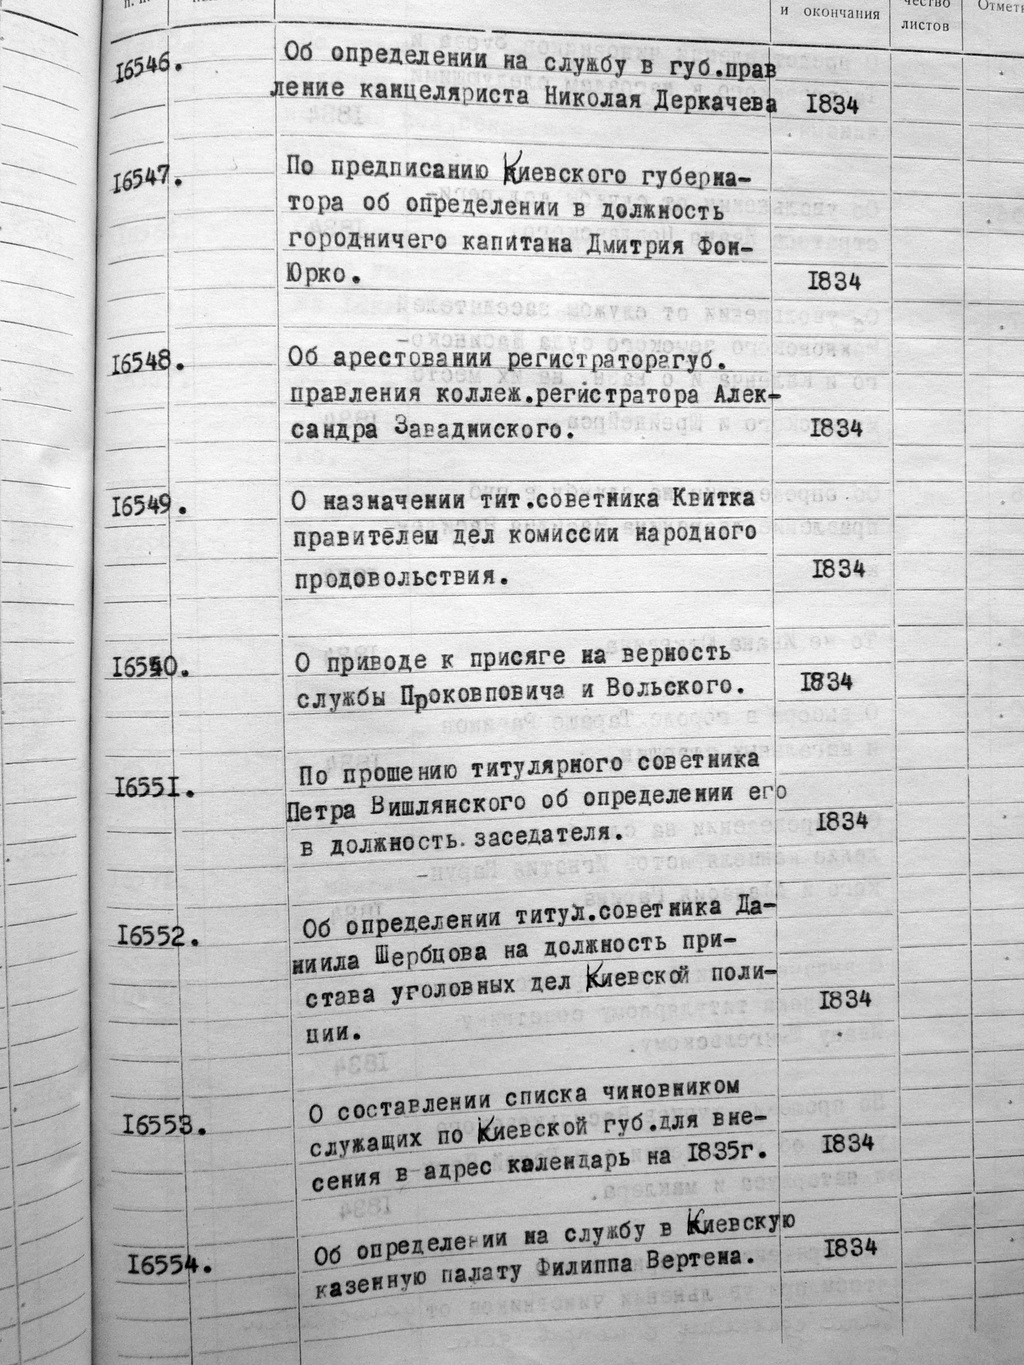 и окончания
чество
листов
16546.
Об определении на службу в губ.прав
ление канцеляриста Николая Деркачева 1834
16547.
По предписанию Киевского губерна-
тора об определении в должность
городничего капитана Дмитрия Фон-
Юрко. 1834
16548.
Об арестовании регистраторагуб.
правления коллеж.регистратора Алек-
сандра Завадниского. 1834
16549.
О назначении тит.советника Квитка
правителем дел комиссии народного
продовольствия. 1834
16550.
О приводе к присяге на верность
службы Проковповича и Вольского. 1834
16551.
По прошению титулярного советника
Петра Вишлянского об определении его
в должность заседателя. 1834
16552.
Об определении титул.советника Да-
ниила Шербцова на должность при-
става уголовных дел Киевской поли-
ции. 1834
16553.
О составлении списка чиновником
служащих по Киевской губ.для вне-
сения в адрес календарь на 1835г. 1834
16554.
Об определении на службу в Киевскую
казенную палату Филиппа Вертена. 1834